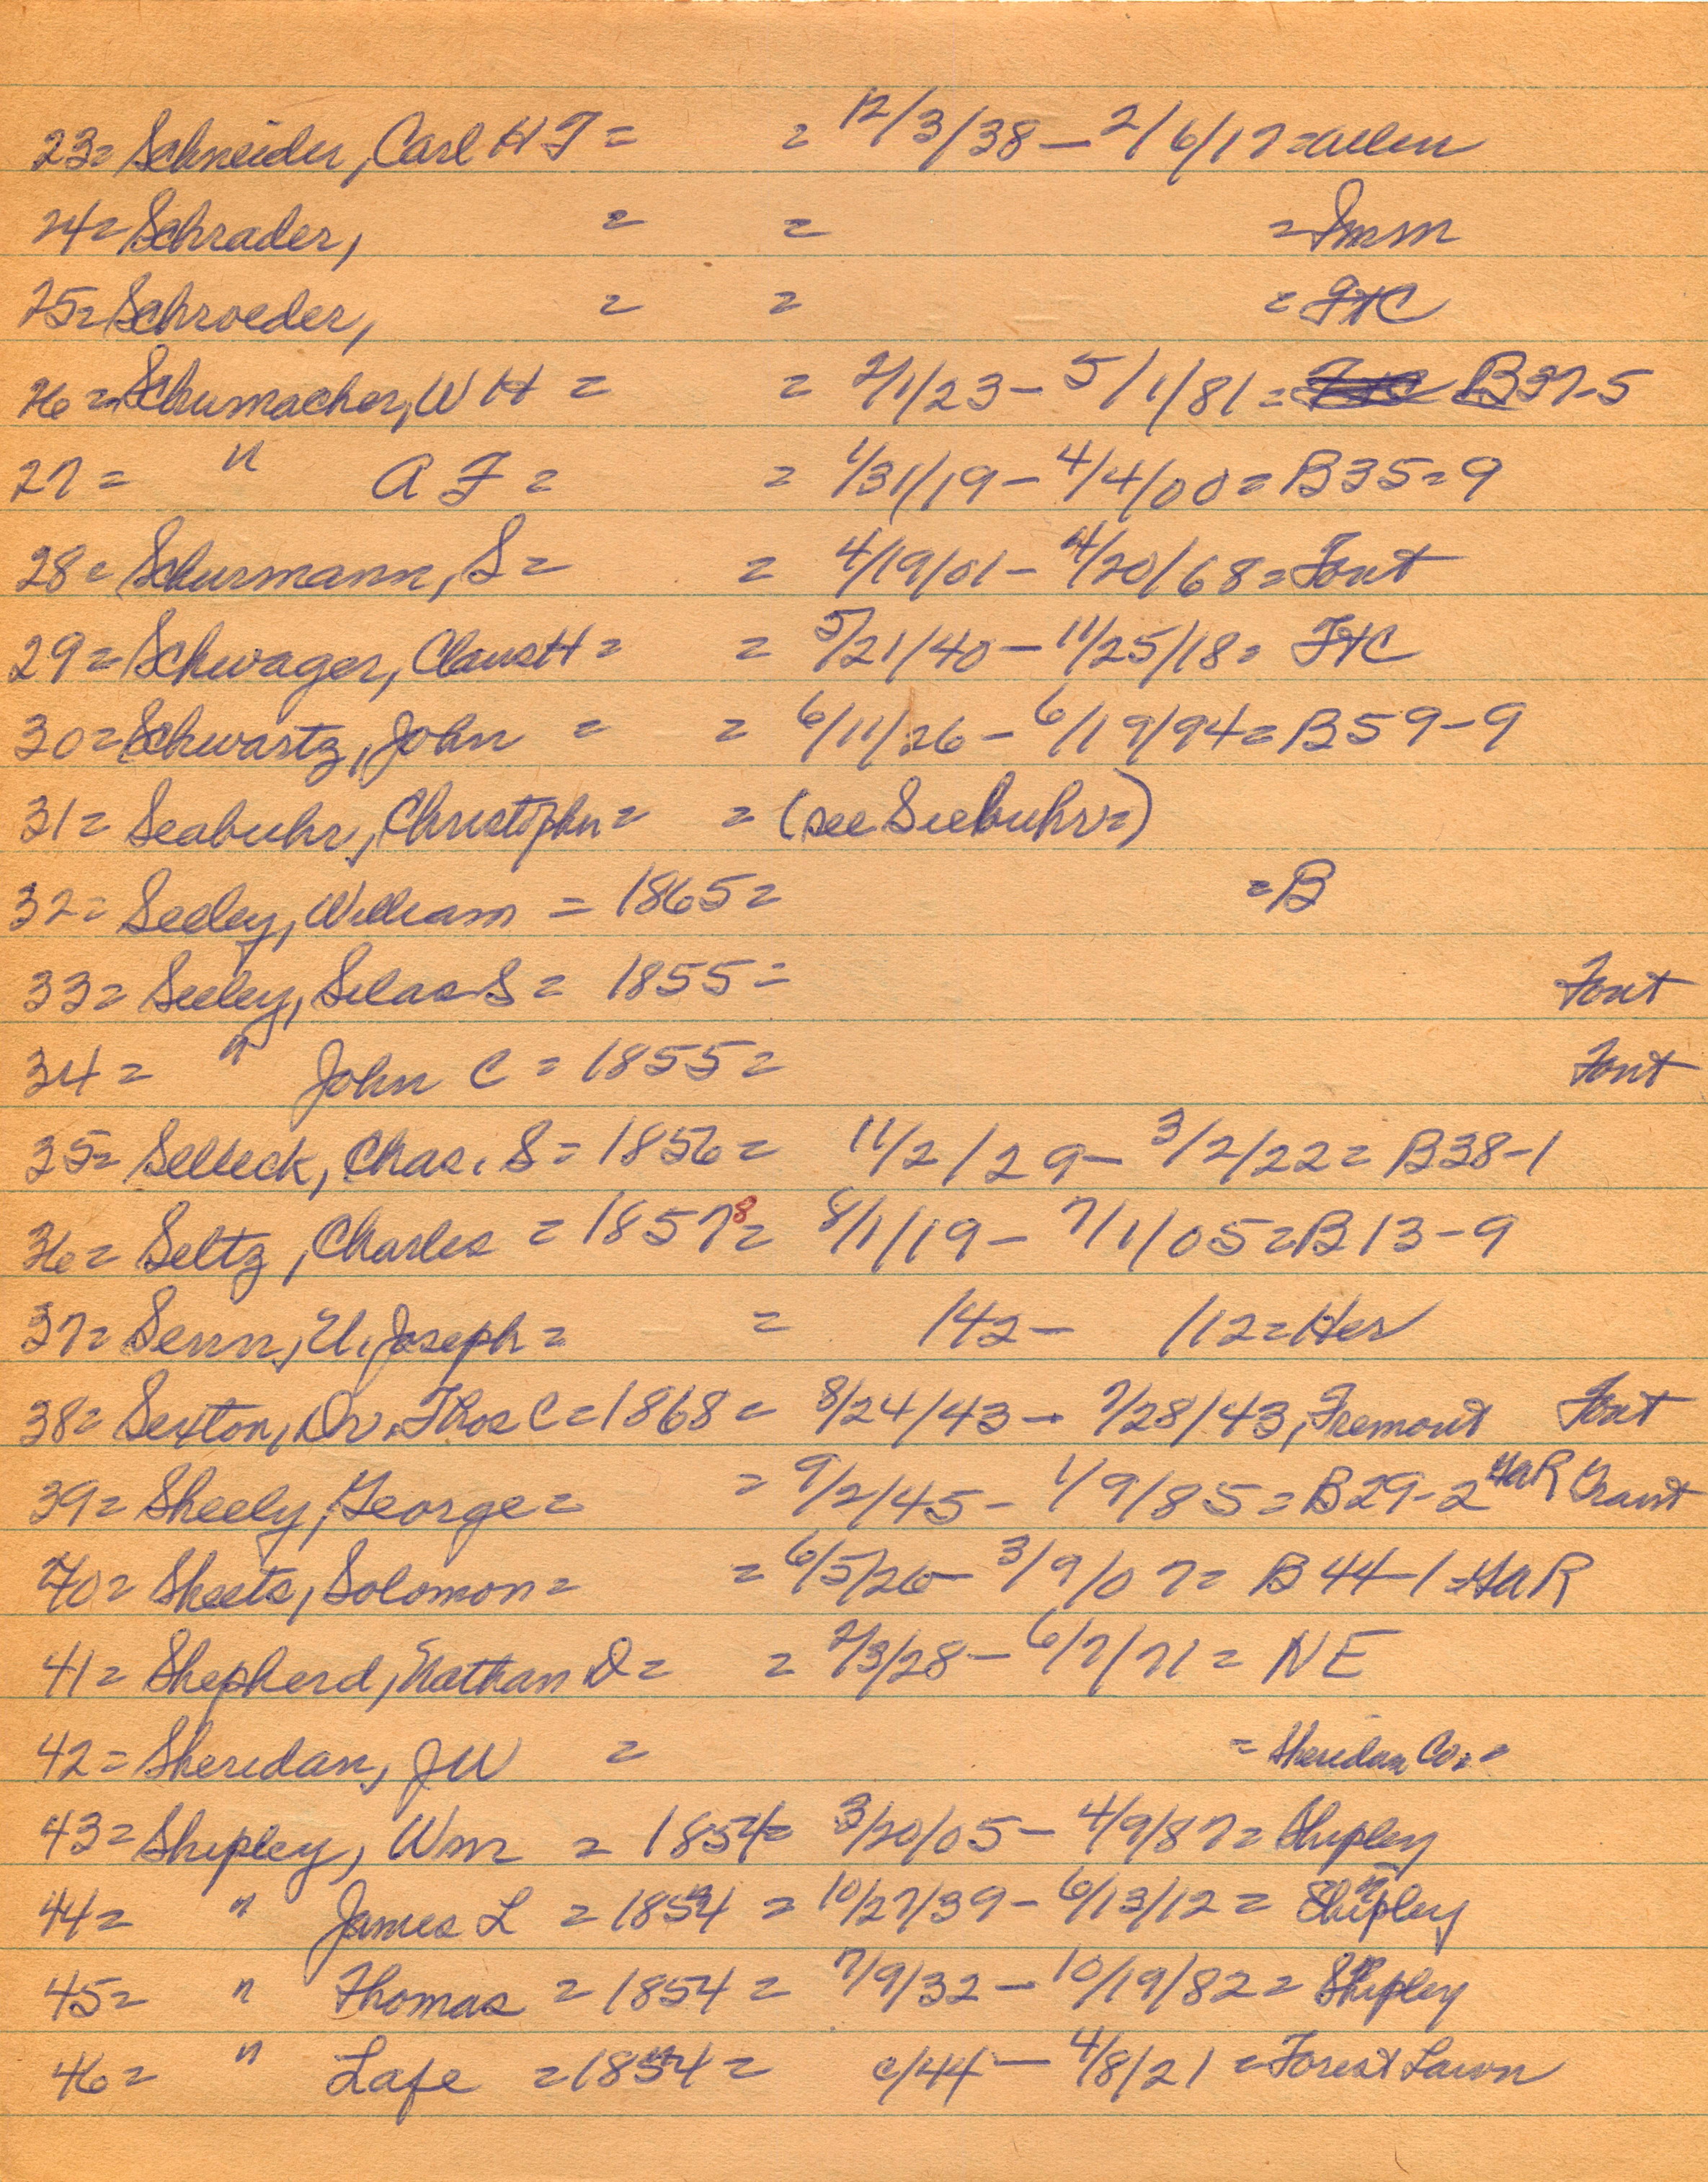 23= Schneider, Carl H F = = 12/3/38 - 2/6/17 = Allen
24= Schrader, = = =
25= Schroeder, = = = FHC
26= Schumacher, W H = = 2/1/23 - 5/1/81 = B37-5
27= " A F = = 1/31/19 - 4/4/00 = B35=9
28= Schurmann, S = = 4/19/01 - 4/20/68 = Font
29= Schwager, Claus H = = 5/21/40 - 11/25/18 = FHC
30= Schwartz, John = = 6/11/26 - 6/19/94 = B59-9
31= Seabuhr, Christopher = = (see Seebuhr=)
32= Seeley, William = 1865 = =B
33= Seeley, Silas S = 1855 = Font
34= " John C = 1855 = Font
35= Selleck, Chas. S = 1856 = 11/2/29 - 3/2/22 = B38-1
36= Seltz, Charles = 1857 8 = 8/1/19 - 7/1/05 = B13-9
37= Senn, U. Joseph = = /42 - /12 = Her
38= Sexton, Dr. Thos C = 1868 = 8/24/43 - 7/28/43, Fremont Font
39= Sheely, George = = 9/2/45 - 1/9/85 = B29-2 GAR Grant
40= Sheets, Solomon = = 6/5/26 - 3/9/07 = B44-1 = GAR
41= Shepherd, Nathan D = = 2/3/28 - 6/7/71 = NE
42= Sheridan, JW = = Sheridan Co. =
43= Shipley, Wm = 1854 = 3/20/05 - 4/9/87 = Shipley
44= " James L = 1854 = 10/27/39 - 6/13/12 = Shipley
45= " Thomas = 1854 = 7/9/32 - 10/19/82 = Shipley
46= " Lafe = 1854 = c/44 - 4/8/21 = Forest Lawn